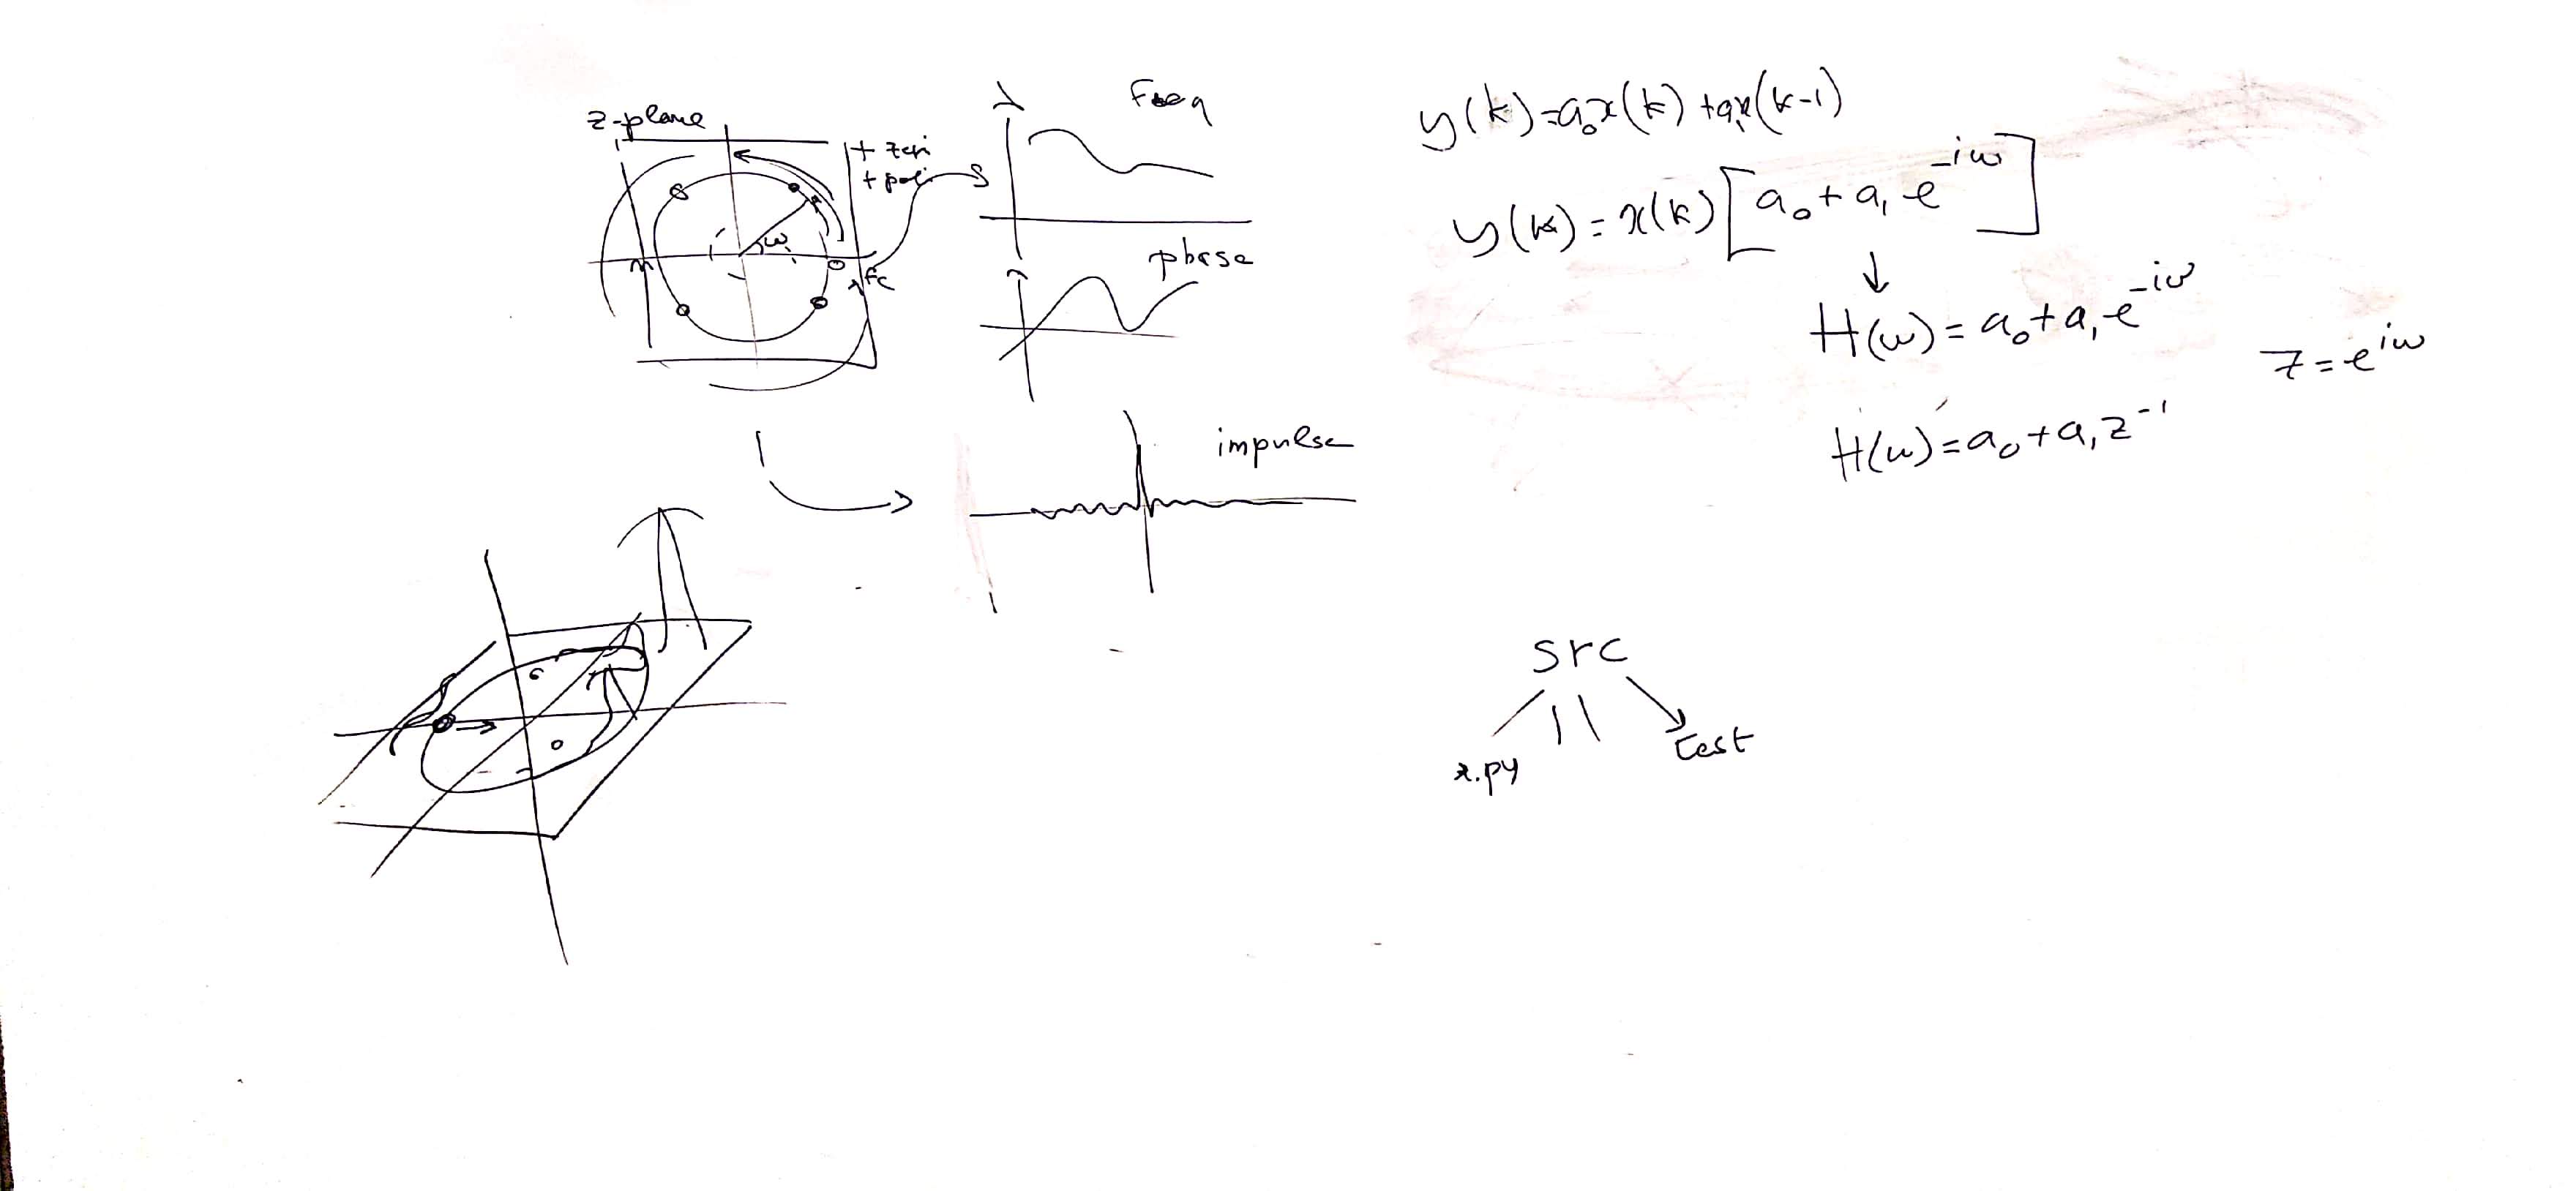 z-plane
+ zeri
+ poli
ω
fc
Freq
phase
impulse
y(k)=a₀x(k)+a₁x(k-1)
y(k)=x(k)[a₀+a₁e^-iω]
↓
H(ω)=a₀+a₁e^-iω
z=e^iω
H(ω)=a₀+a₁z^-1
src
test